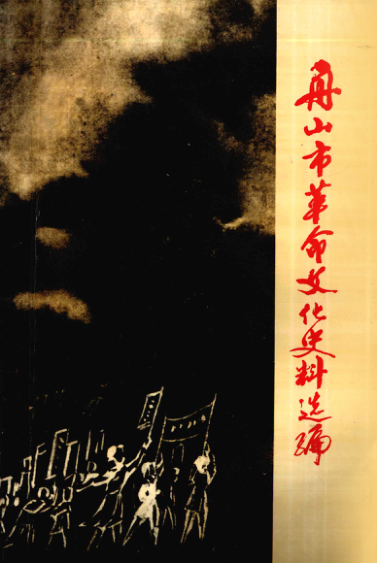 舟山市革命文化史料选编